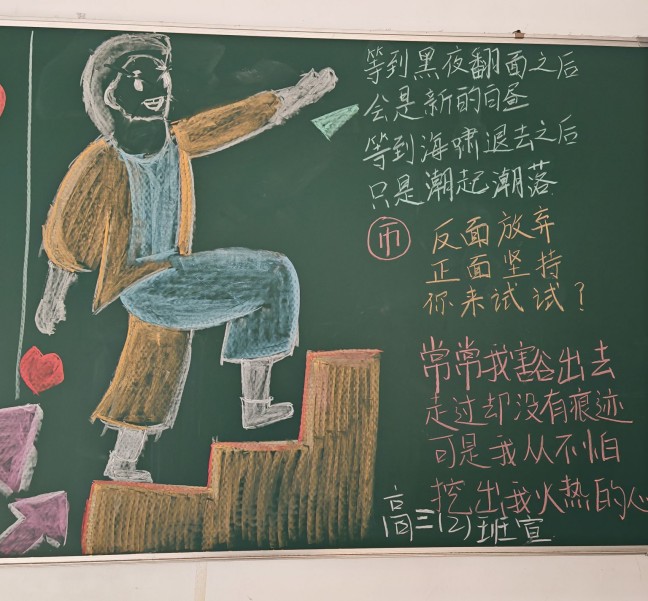 等到黑夜翻面之后
会是新的白昼
等到海啸退去之后
只是潮起潮落
币
反面放弃
正面坚持
你来试试？
常常我豁出去
走过却没有痕迹
可是我从不怕
挖出我火热的心
高三(2)班宣